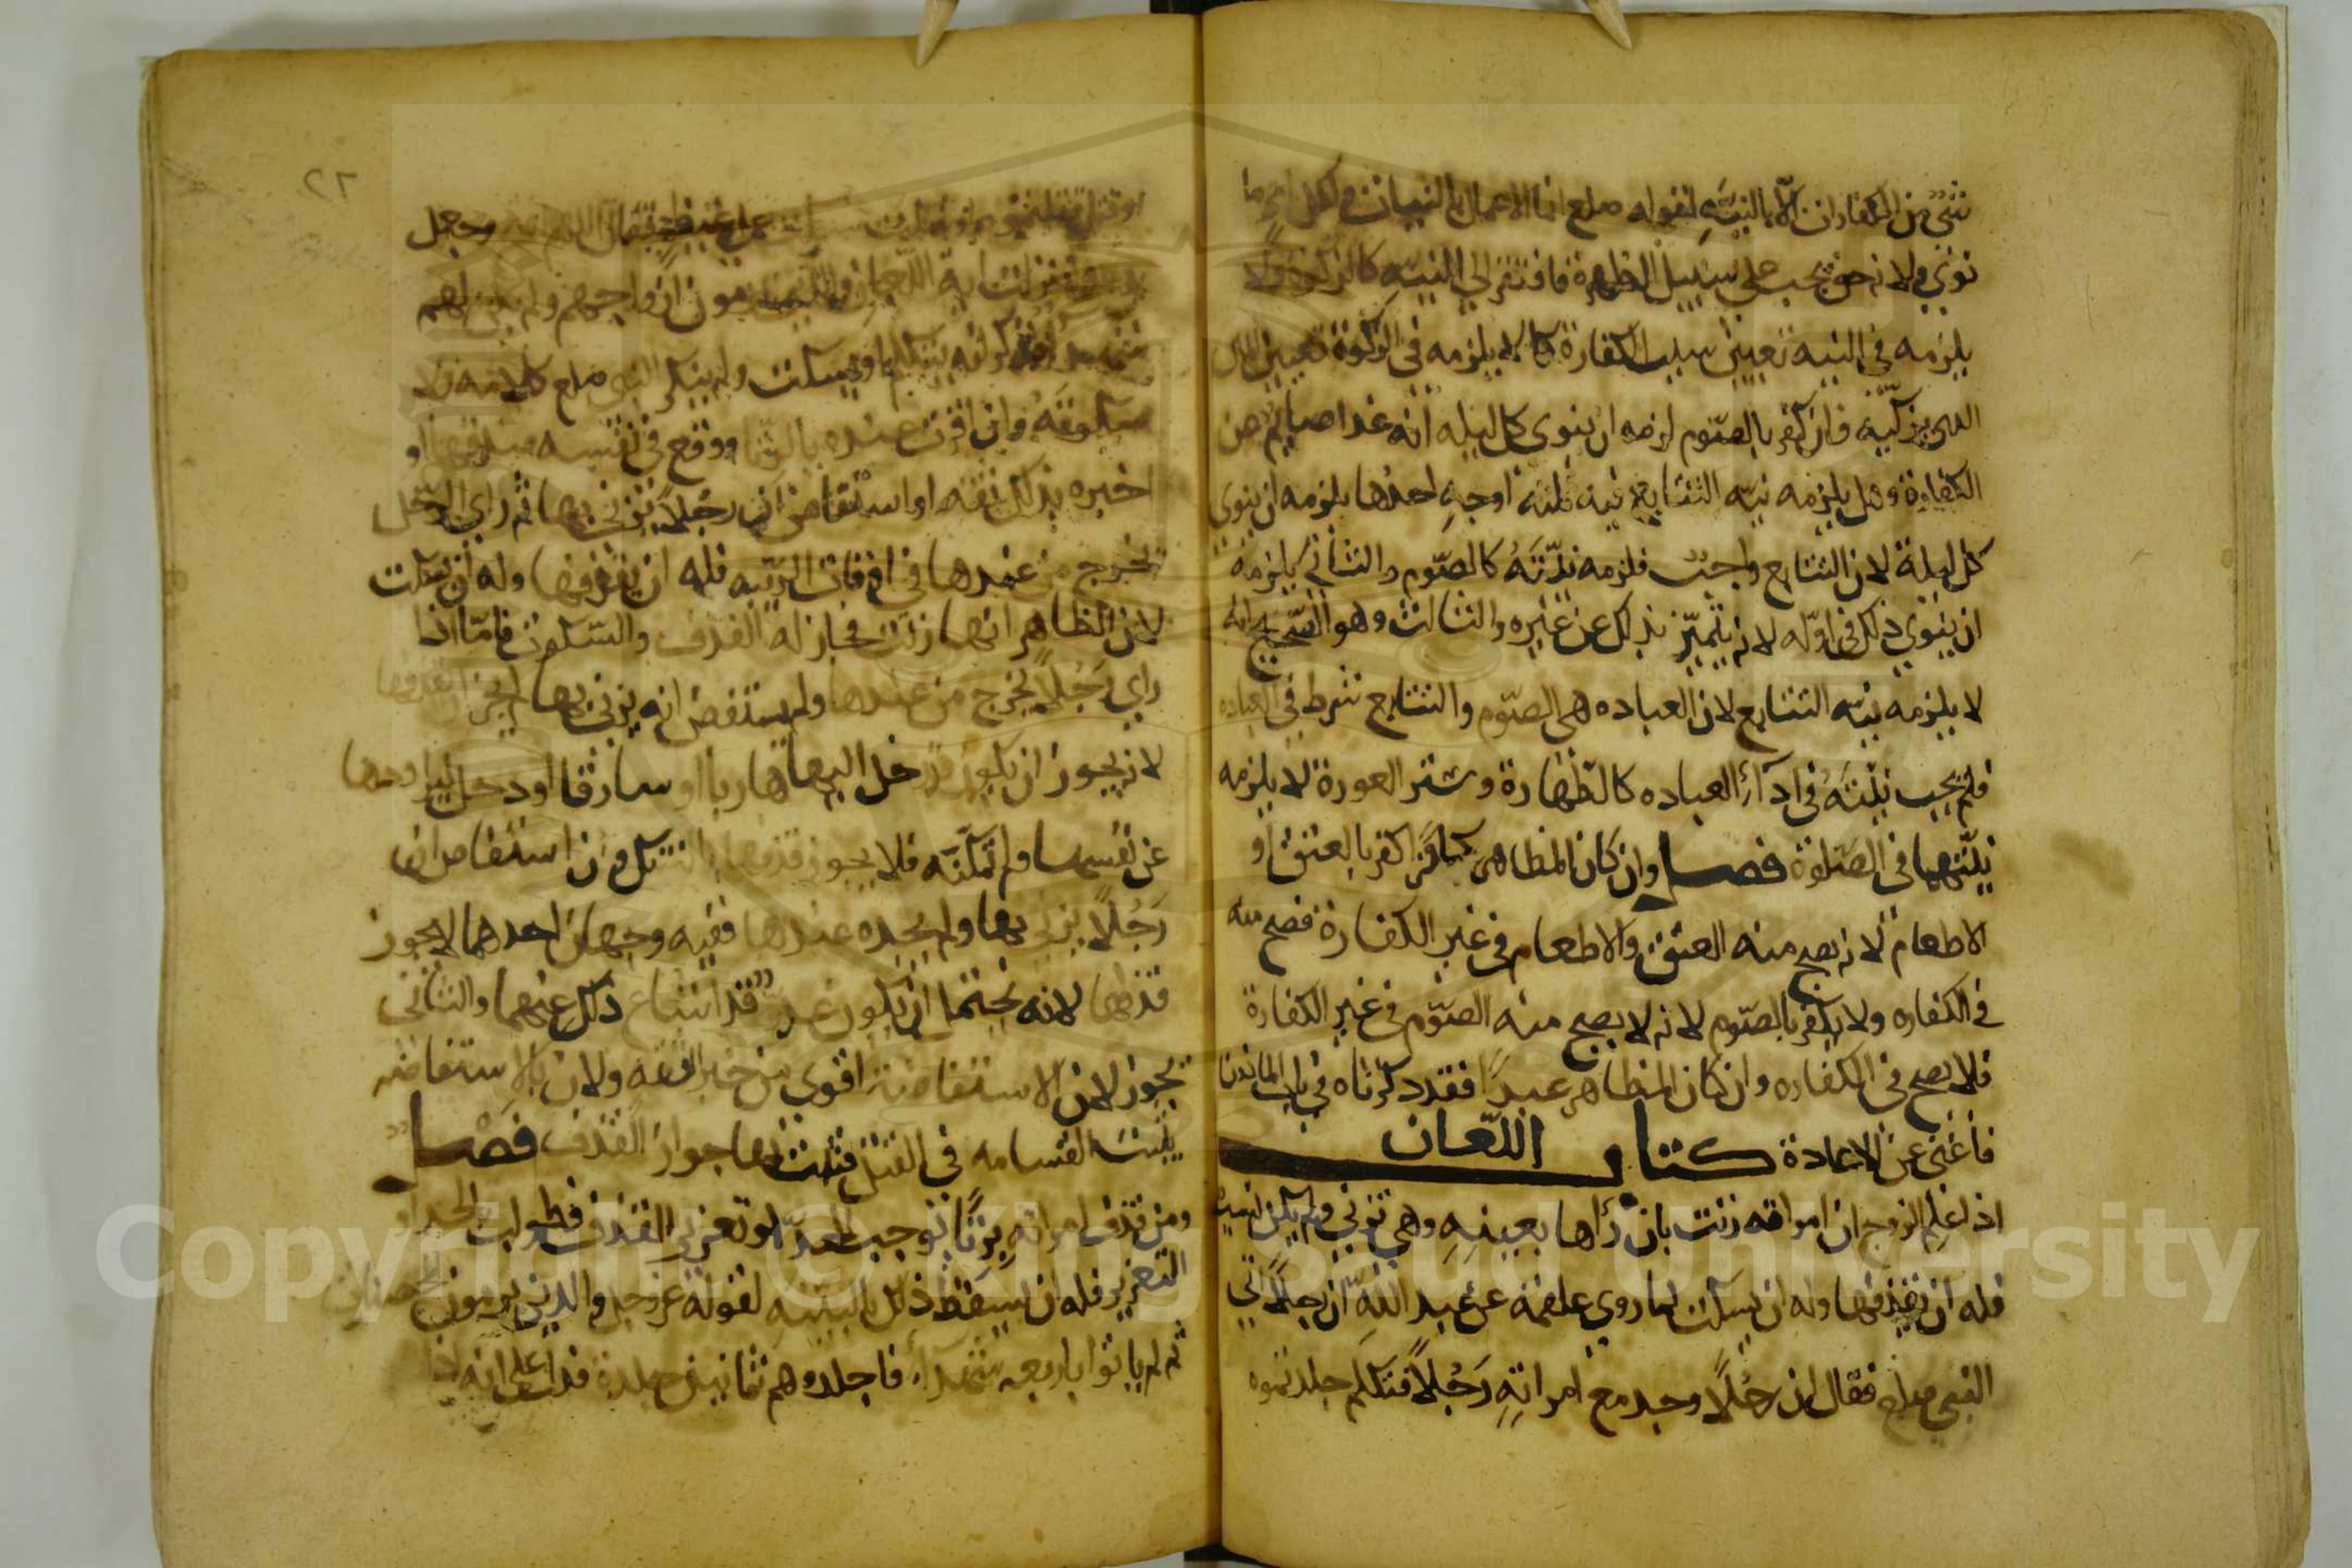 شيء من الكفارات الا بالنية لقوله صلع انما الاعمال بالنيات ولكل امرئ ما
نوى ولانه حق يجب على سبيل الطهرة فافتقر الى النية كالزكوة ولا
يلزمه في النيه تعيين سبب الكفارة كما لا يلزمه في الزكوة تعيين المال
الذي يزكيه فان كفر بالصوم لزمه ان ينوي كل ليله انه غدا صايم عن
الكفارة وهل يلزمه نية التتابع فيه ثلثة اوجه احدها يلزمه ان ينوي
كل ليلة لان التتابع واجب فلزمه نيته كالصوم والثاني يلزمه
ان ينوي ذلك في اوله لانه يتميز بذلك عن غيره والثالث وهو الصحيح انه
لا يلزمه نية التتابع لان العباده هي الصوم والتتابع شرط في العباده
فلم يجب نيته في ادآء العباده كالطهارة وستر العورة لا يلزمه
نيتهما في الصلوة فصل وان كان المظاهر كافرا كفر بالعتق او
الاطعام لانه يصح منه العتق والاطعام في غير الكفارة فصح منه
في الكفاره ولا يكفر بالصوم لانه لا يصح منه الصوم في غير الكفارة
فلا يصح في الكفاره وان كان المظاهر عبدا فقد ذكرناه في باب الماذون
فاغنى عن الاعادة كتاب اللعان
اذا علم الزوج ان امراته زنت بان رأها بعينه وهي تزني ولم يكن نسب
فله ان يقذفها وله ان يسكت لما روى علقمة عن عبد الله ان رجلا اتى
النبي صلع فقال ان رجلا وجد مع امراته رجلا فتكلم جلدتموه
٢٦
او قتل قتلتموه او سكت سكت على غيظ فقال اللهم وجعل
يدعو فنزلت اية اللعان والذين يرمون ازواجهم ولم يكن لهم
شهداء فذكر انه يتكلم او يسكت ولم ينكر النبي صلع كلامه ولا
سكوته وان اقرت عنده بالزنا ووقع في نفسه صدقها او
اخبره بذلك ثقه او استفاض ان رجلا يزني بها ثم راى الرجل
يخرج من عندها في اوقات الريبه فله ان يقذفها وله ان يسكت
لان الظاهر انها زنت فجاز له القذف والسكوت فاما اذا
راى رجلا يخرج من عندها ولم يستفض انه يزني بها لم يجز ان يقذفها
لانه يجوز ان يكون قد دخل اليها هاربا او سارقا او دخل ليراودها
عن نفسها ولم تمكنه فلا يجوز قذفها بالشك وان استفاض ان
رجلا يزني بها ولم يجده عندها ففيه وجهان احدهما لا يجوز
قذفها لانه يحتمل ان يكون عدو قد اشاع ذلك عنهما والثاني
يجوز لان الاستفاضة اقوى من خبر الثقه ولان بالاستفاضه
يثبت القسامه في القتل فثبت بها جواز القذف فصل
ومن قذف امراته بزنا يوجب الحد او تعزير القذف فطولب بالحد او
التعزير فله ان يسقط ذلك بالبينه لقوله عز وجل والذين يرمون المحصنات
ثم لم ياتوا باربعه شهدآء فاجلدوهم ثمانين جلدة فدل على انه اذا